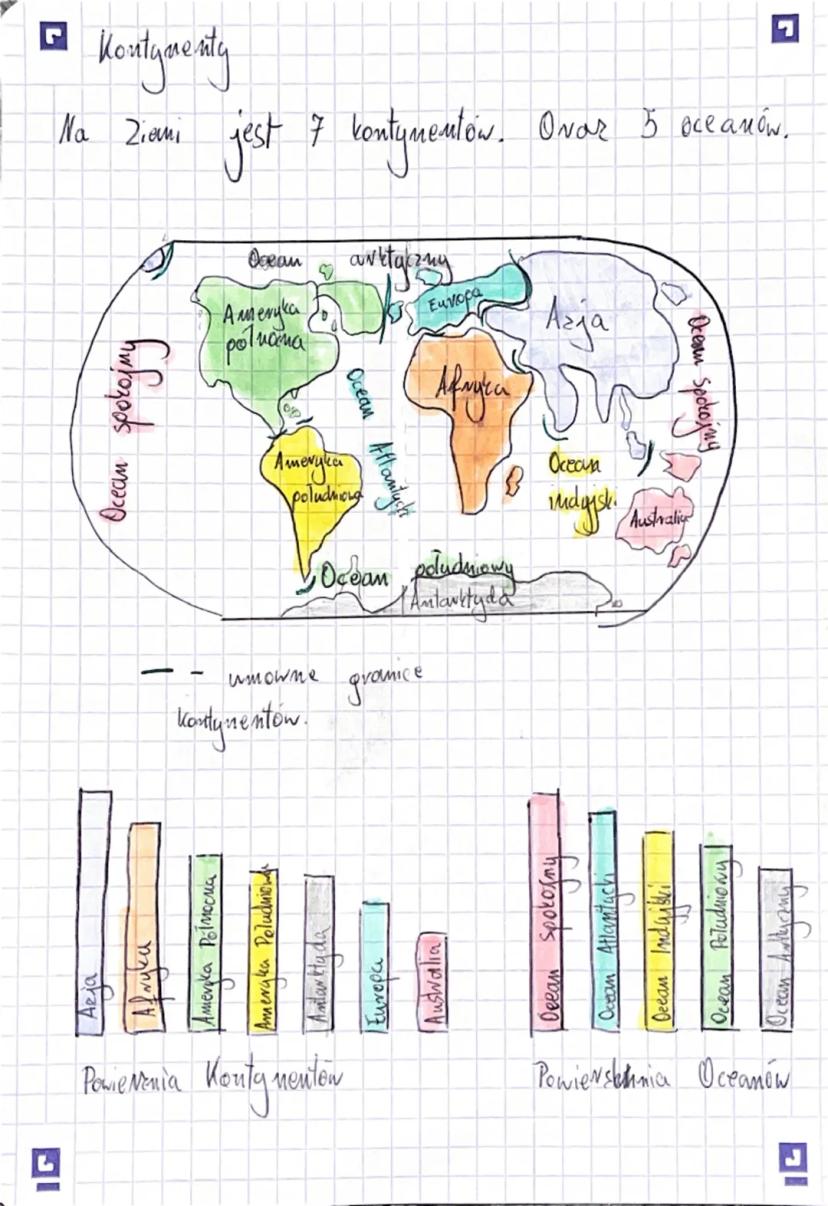 Kontynenty
Na Ziemi jest 7 kontynentów. Oraz 5 oceanów.
Ocean arktyczny
Ameryka
północna
Europa
Azja
Afryka
Ocean spokojny
Ocean Atlantycki
Ocean spokojny
Ameryka
południowa
Ocean
indyjski
Australia
Ocean południowy
Antarktyda
— - umowne granice
kontynentów.
Azja
Afryka
Ameryka Północna
Ameryka Południowa
Antarktyda
Europa
Australia
Ocean spokojny
Ocean Atlantycki
Ocean Indyjski
Ocean Południowy
Ocean Arktyczny
Powierznia Kontynentów
Powierzchnia Oceanów